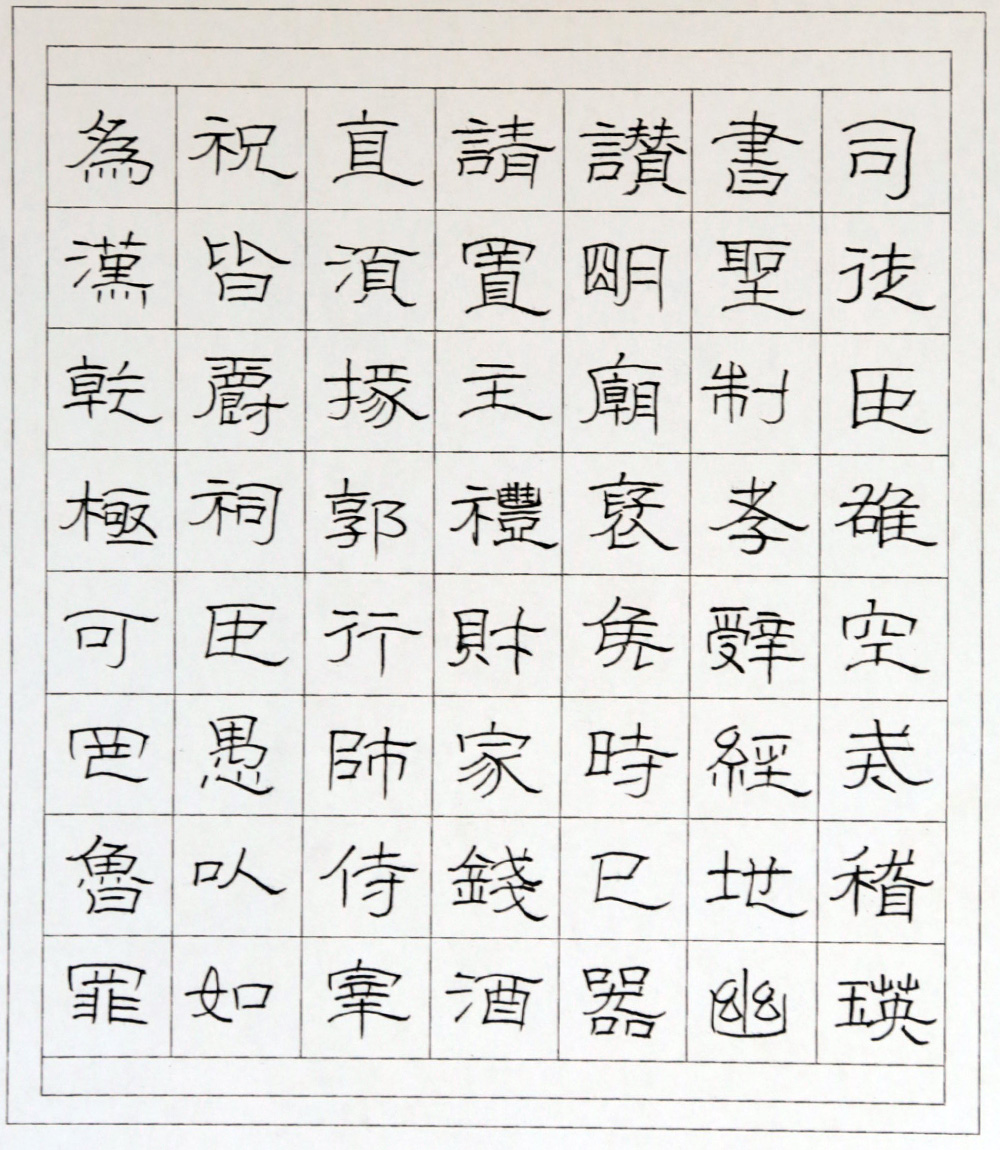 司徒臣雄空戒稽瑛
書聖制孝辭經地幽
讚明廟褒侯時已器
請置主禮財家錢酒
直須掾郭行師侍宰
祝皆爵祠臣愚以如
為漢乾極可魯罪